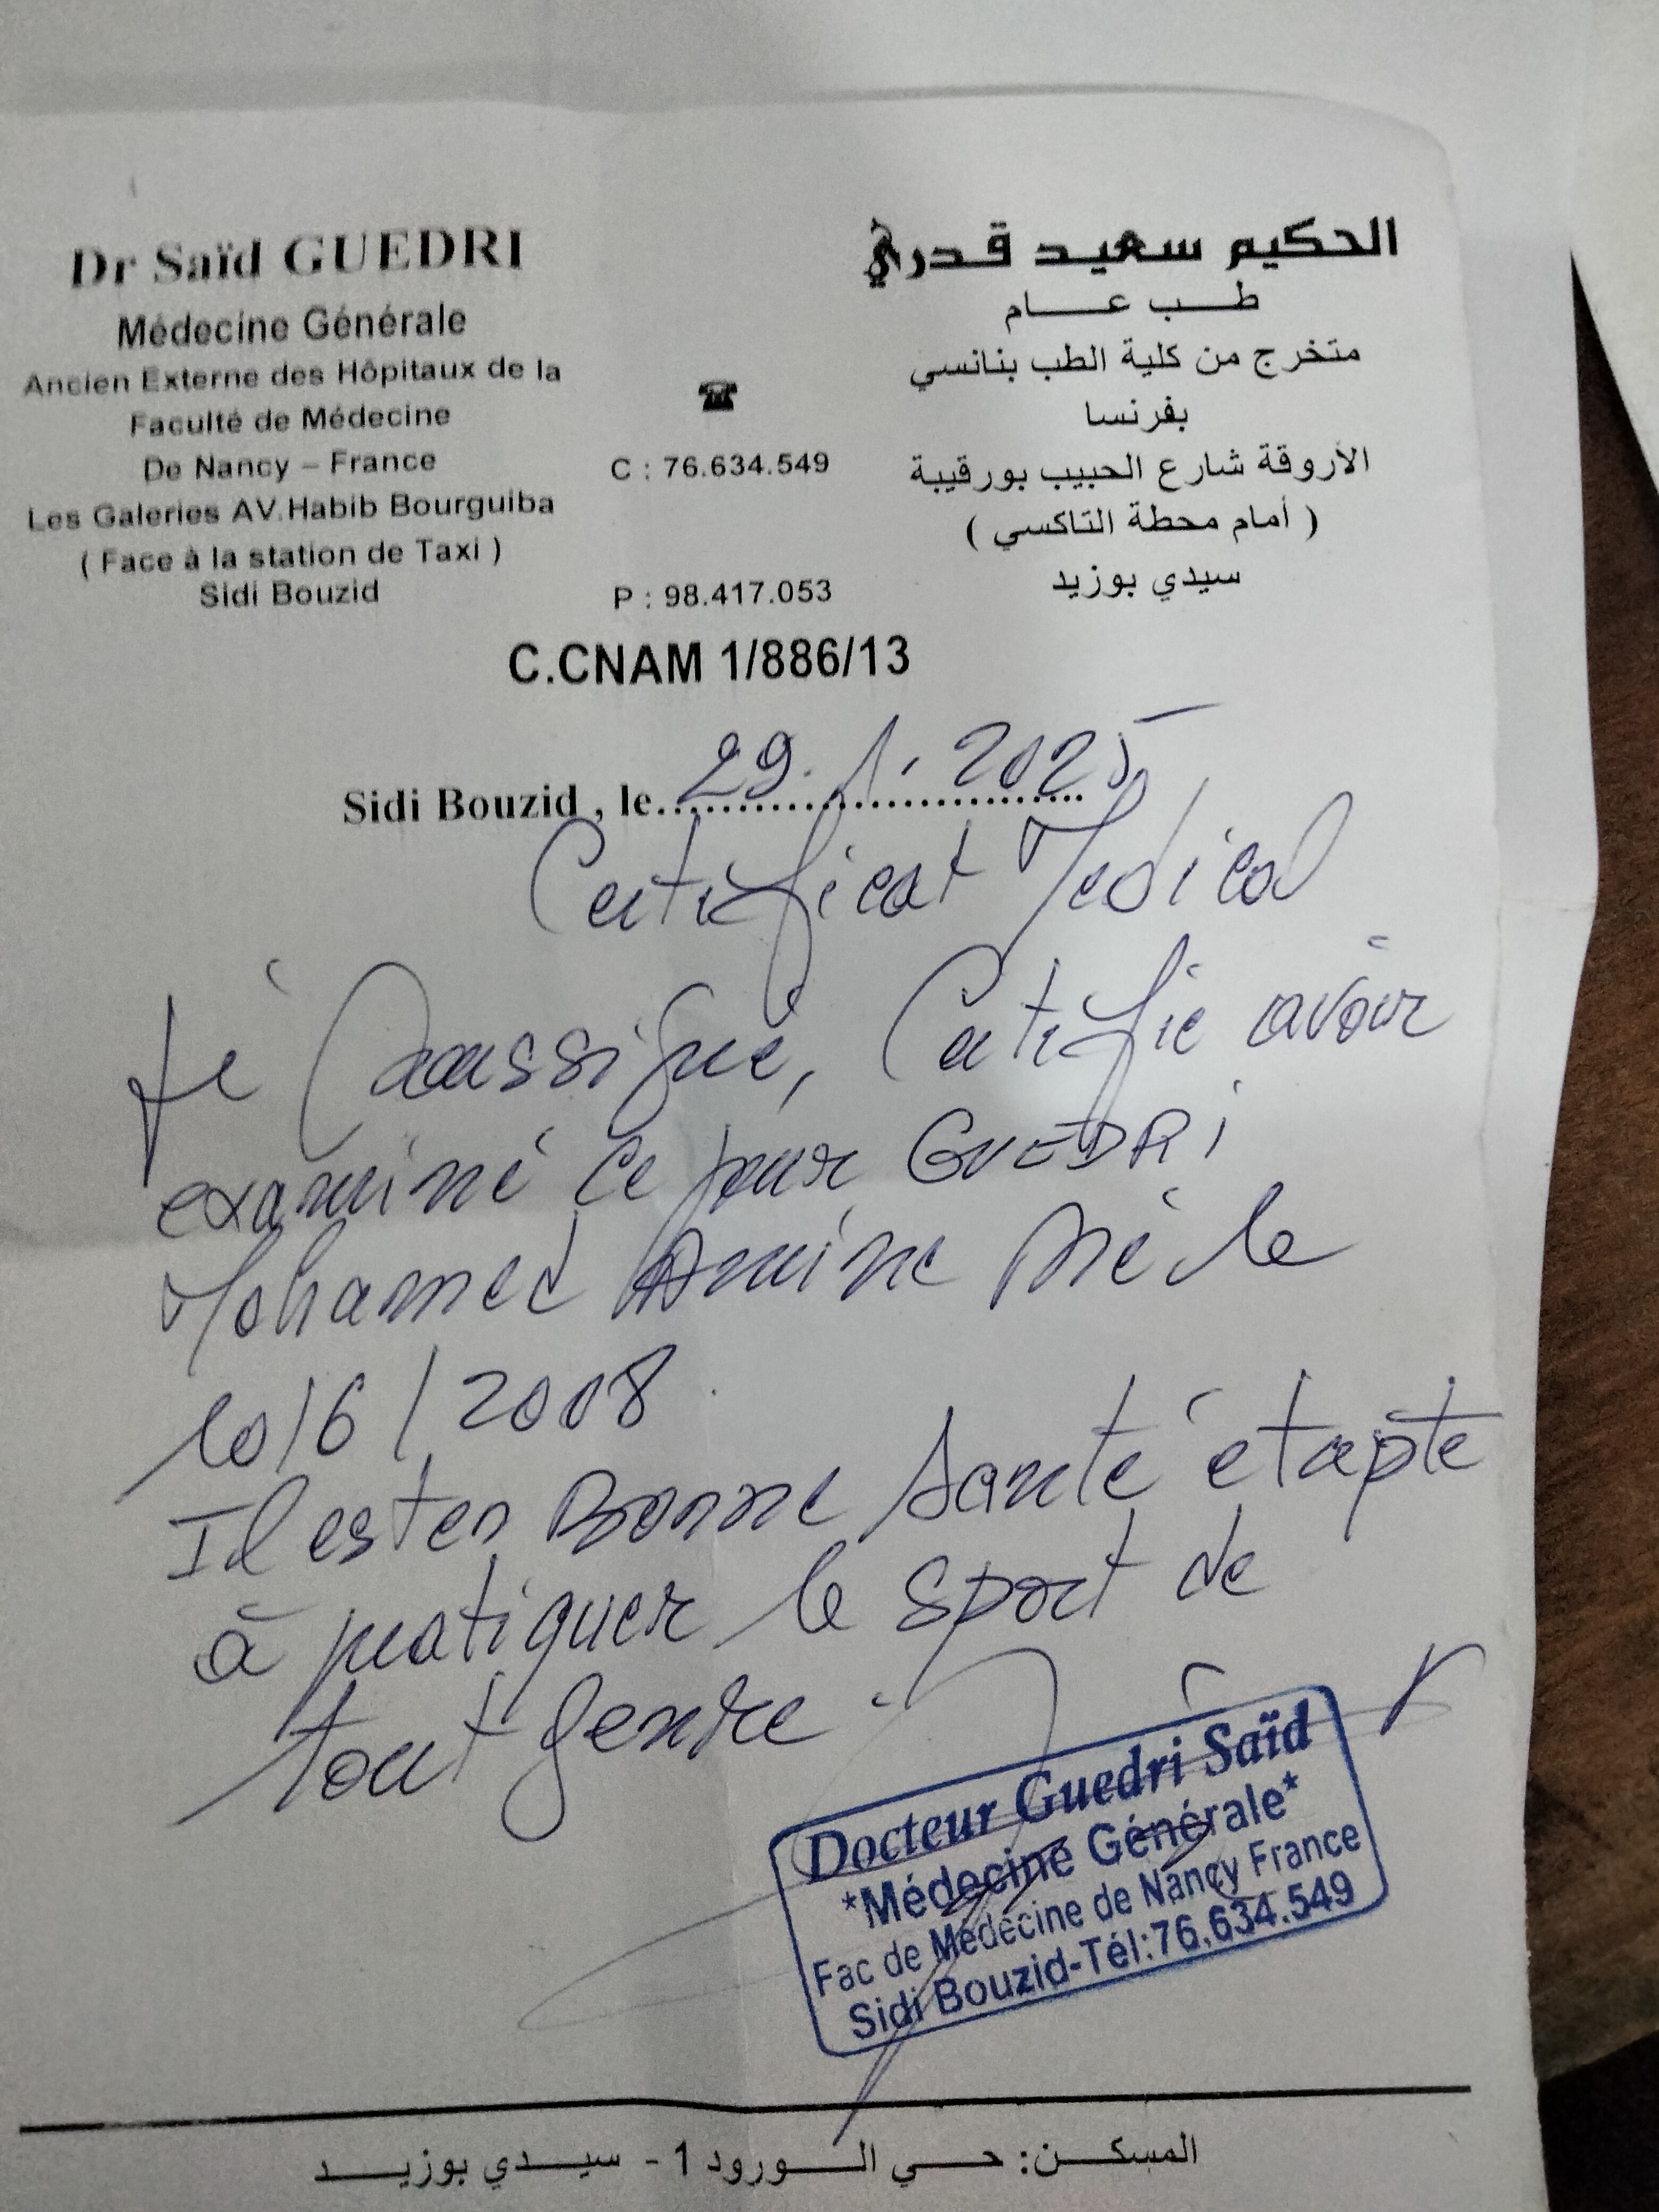 Dr Saïd GUEDRI
Médecine Générale
Ancien Externe des Hôpitaux de la
Faculté de Médecine
De Nancy – France
Les Galeries AV.Habib Bourguiba
( Face à la station de Taxi )
Sidi Bouzid
☎
C : 76.634.549
P : 98.417.053
الحكيم سعيد قدري
طب عام
متخرج من كلية الطب بنانسي
بفرنسا
الأروقة شارع الحبيب بورقيبة
( أمام محطة التاكسي )
سيدي بوزيد
C.CNAM 1/886/13
Sidi Bouzid , le 29.1.2025
Certificat Medical
Je soussigné, Certifie avoir
examiné ce jour GUEDRI
Mohamed Amine Né le
10/6/2008
Il est en Bonne santé et apte
à pratiquer le sport de
tout genre.
Docteur Guedri Saïd
*Médecine Générale*
Fac de Médecine de Nancy France
Sidi Bouzid-Tél:76.634.549
المسكن: حي الورود 1 - سيدي بوزيد